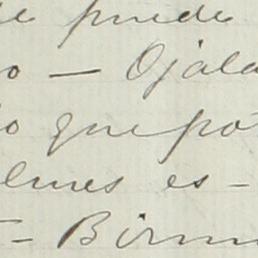 se puede
o — Ojala
lo que po
lmes es -
- Birm